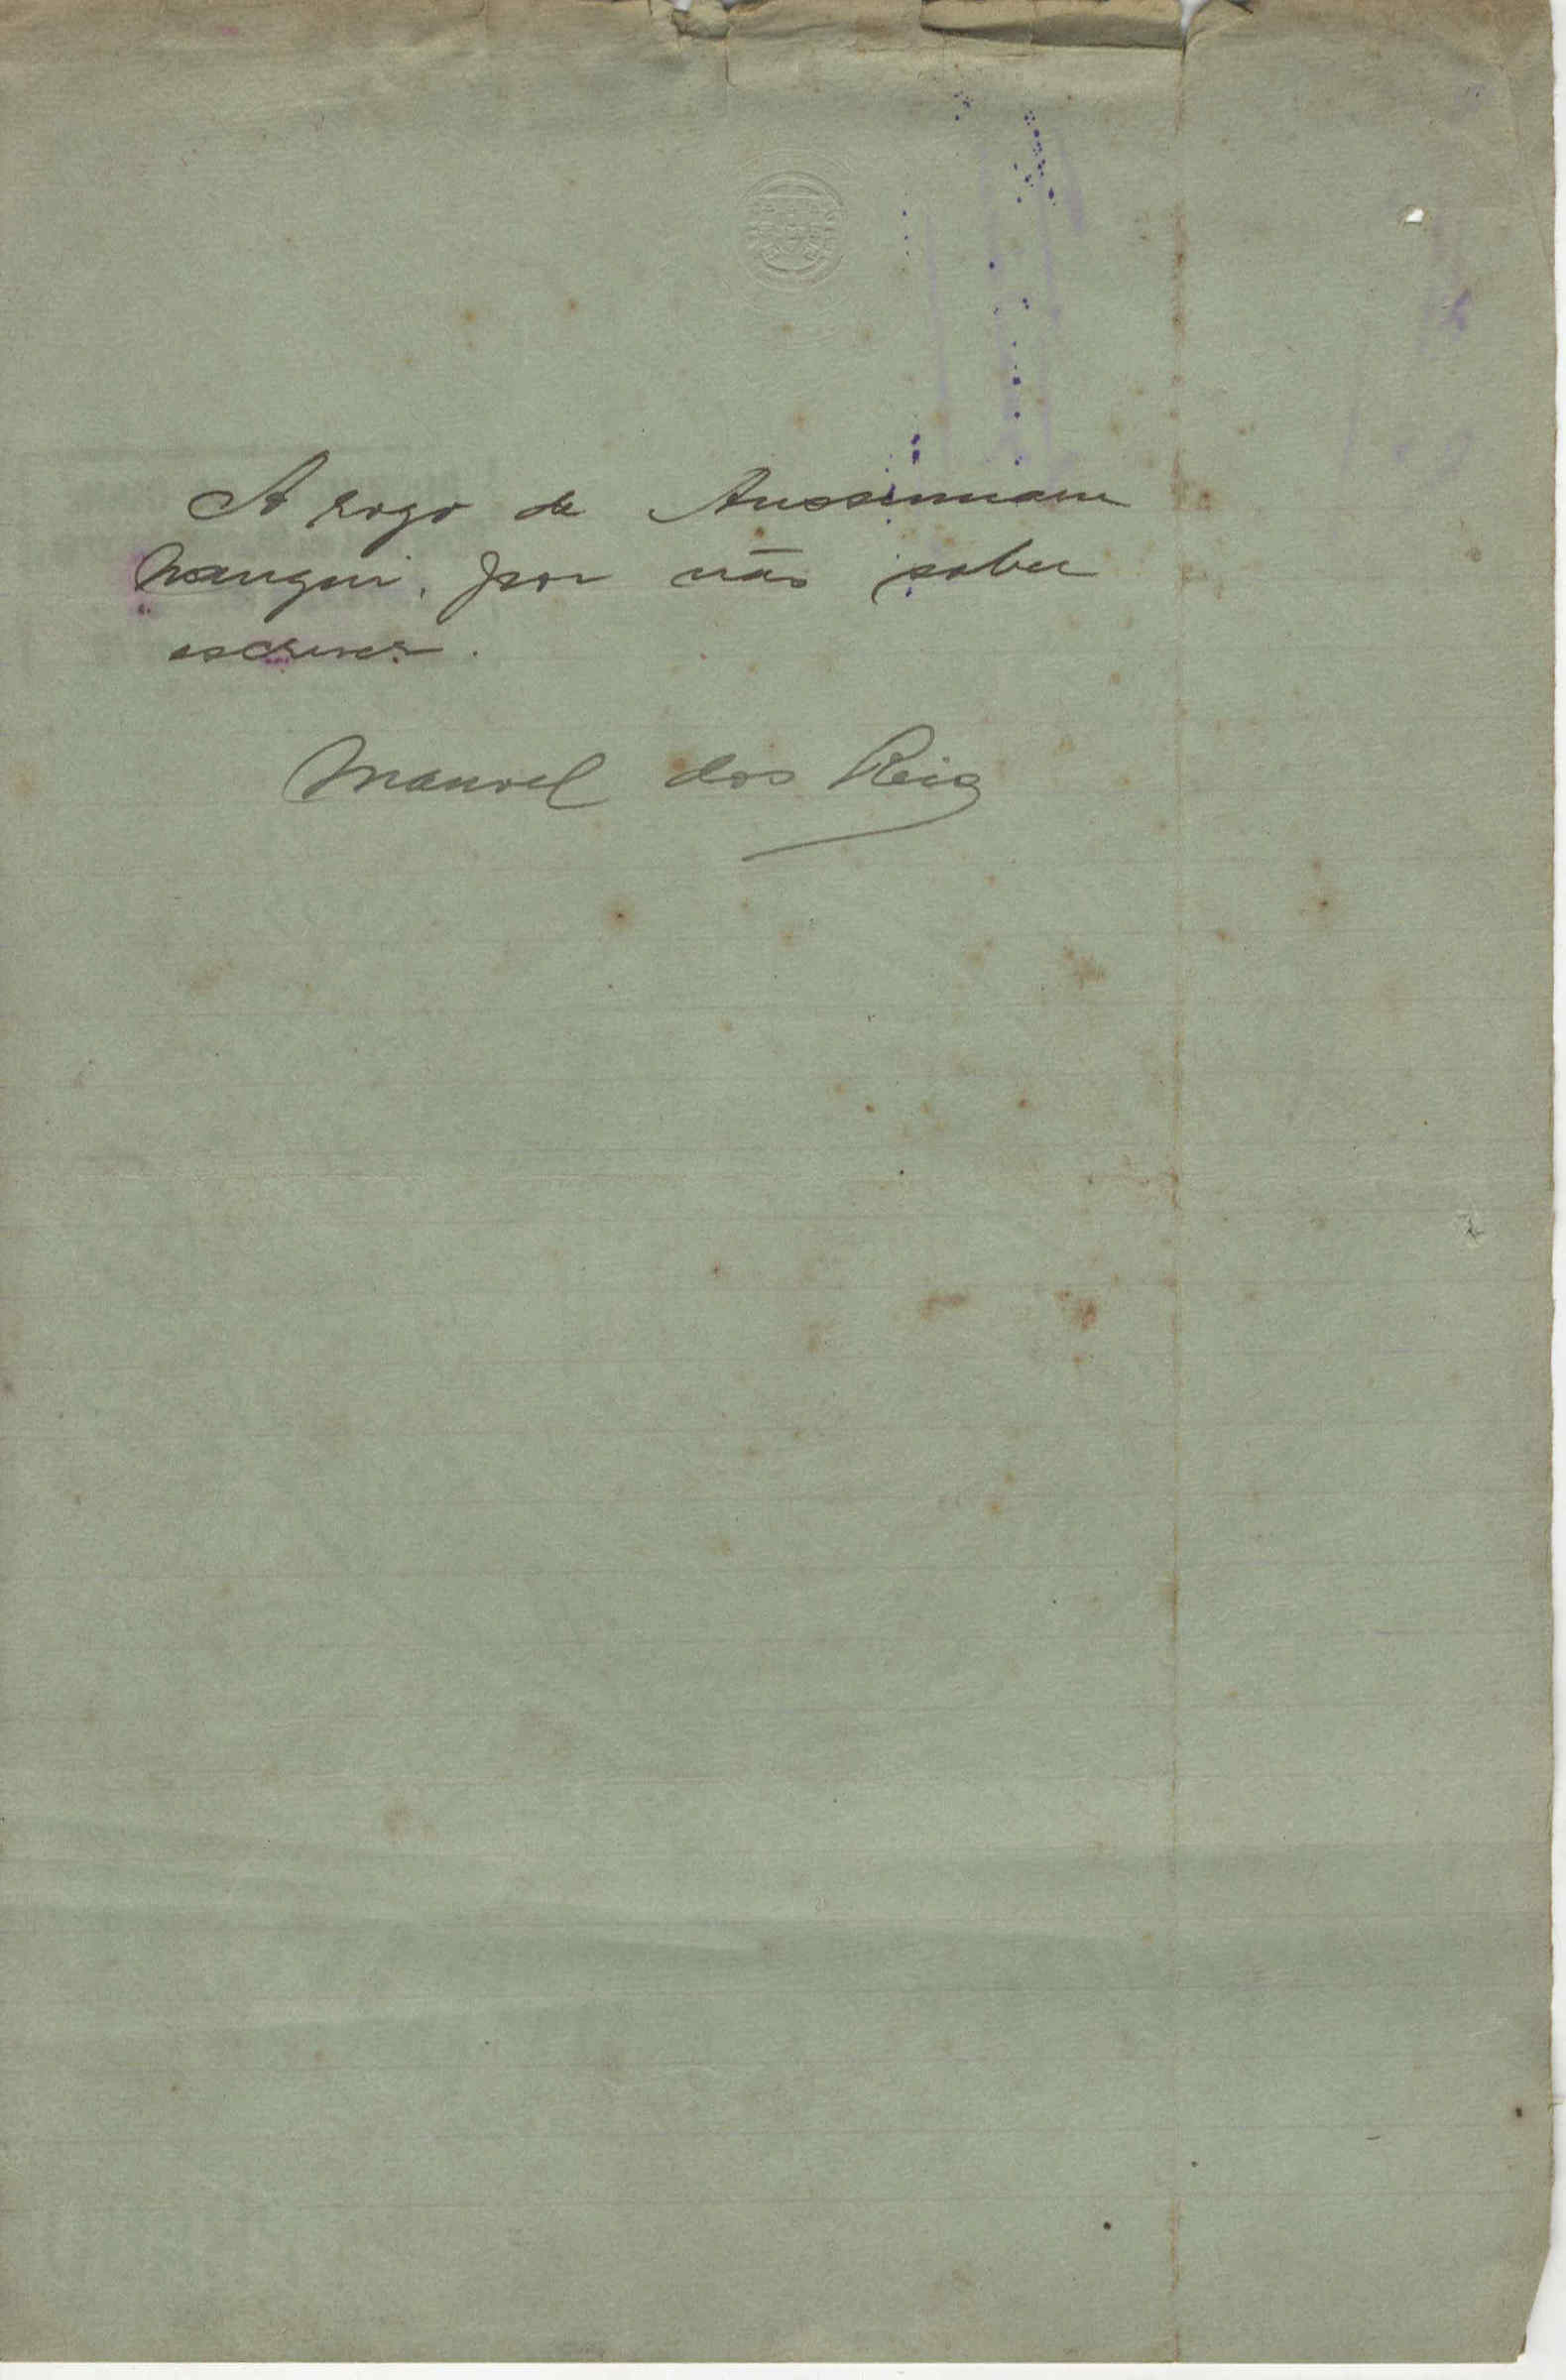 A rogo de Aussumane
Mangui, por não saber
escrever.
Manoel dos Reis